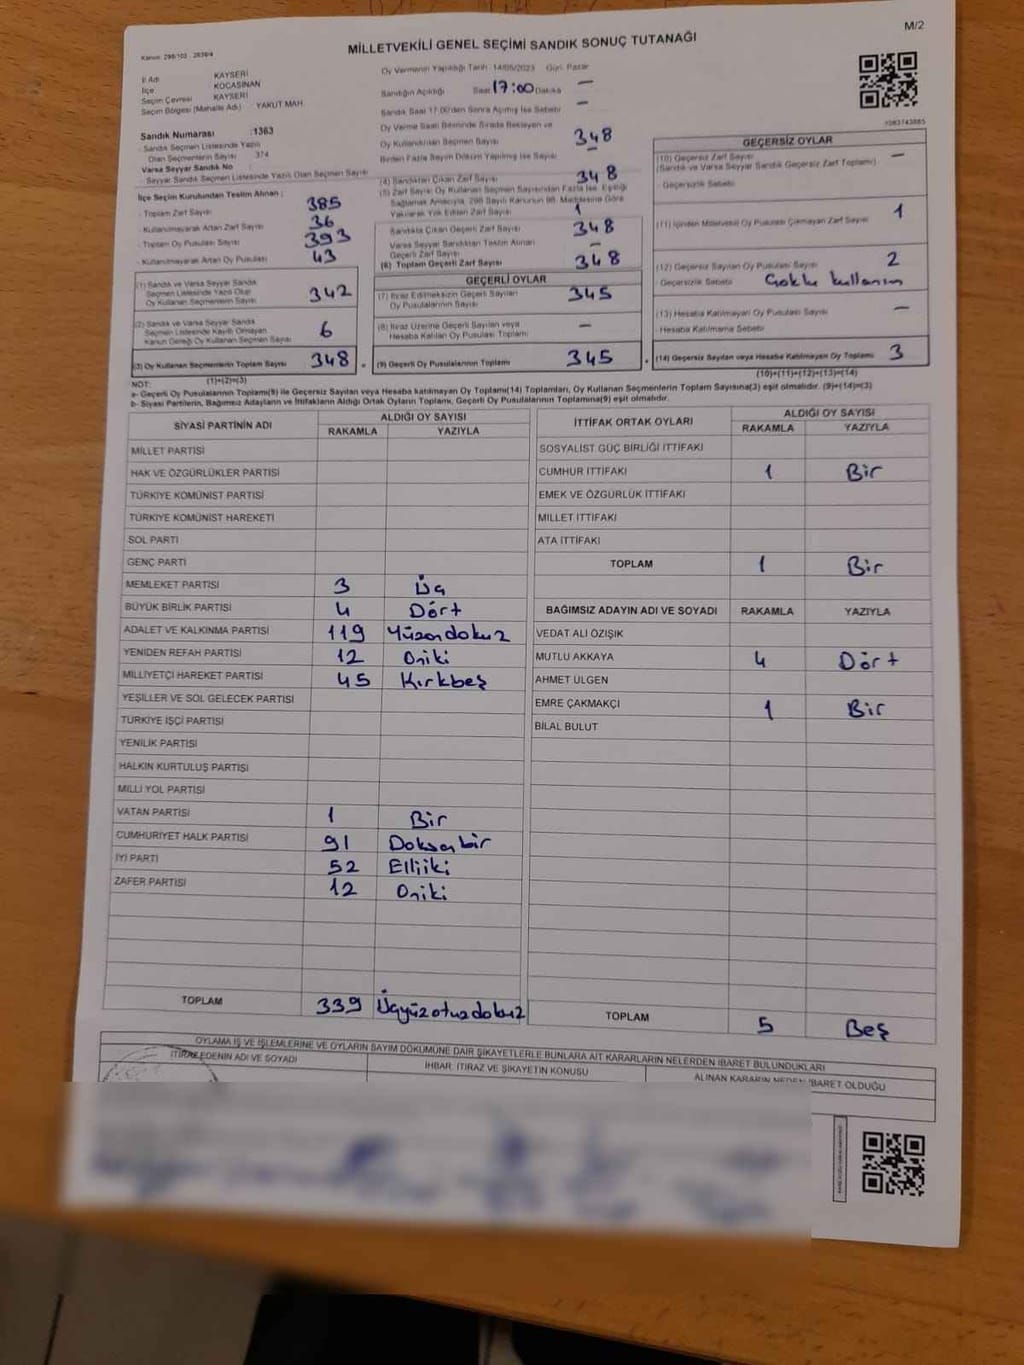 M/2
Kanun: 298/103 - 2839/4
MİLLETVEKİLİ GENEL SEÇİMİ SANDIK SONUÇ TUTANAĞI
İl Adı KAYSERİ
İlçe KOCASİNAN
Seçim Çevresi KAYSERİ
Seçim Bölgesi (Mahalle Adı) YAKUT MAH.
Sandık Numarası :1363
- Sandık Seçmen Listesinde Yazılı
Olan Seçmenlerin Sayısı 374
Varsa Seyyar Sandık No :
- Seyyar Sandık Seçmen Listesinde Yazılı Olan Seçmen Sayısı
İlçe Seçim Kurulundan Teslim Alınan :
- Toplam Zarf Sayısı 385
- Kullanılmayarak Artan Zarf Sayısı 36
- Toplam Oy Pusulası Sayısı 393
- Kullanılmayarak Artan Oy Pusulası 43
(1) Sandık ve Varsa Seyyar Sandık
Seçmen Listesinde Yazılı Olup
Oy Kullanan Seçmenlerin Sayısı 342
(2) Sandık ve Varsa Seyyar Sandık
Seçmen Listesinde Kayıtlı Olmayan
Kanun Gereği Oy Kullanan Seçmen Sayısı 6
(3) Oy Kullanan Seçmenlerin Toplam Sayısı 348
(1)+(2)=(3)
Oy Vermenin Yapıldığı Tarih :14/05/2023 Gün: Pazar
Sandığın Açıldığı Saat 17:00 Dakika —
Sandık Saat 17:00'den Sonra Açılmış İse Sebebi —
Oy Verme Saati Bitiminde Sırada Bekleyen ve
Oy Kullandırılan Seçmen Sayısı 348
Birden Fazla Sayım Döküm Yapılmış İse Sayısı —
(4) Sandıktan Çıkan Zarf Sayısı 348
(5) Zarf Sayısı Oy Kullanan Seçmen Sayısından Fazla İse, Eşitliği
Sağlamak Amacıyla, 298 Sayılı Kanunun 98. Maddesine Göre
Yakılarak Yok Edilen Zarf Sayısı 1
Sandıkta Çıkan Geçerli Zarf Sayısı 348
Varsa Seyyar Sandıktan Teslim Alınan
Geçerli Zarf Sayısı —
(6) Toplam Geçerli Zarf Sayısı 348
GEÇERLİ OYLAR
(7) İtiraz Edilmeksizin Geçerli Sayılan
Oy Pusulalarının Sayısı 345
(8) İtiraz Üzerine Geçerli Sayılan veya
Hesaba Katılan Oy Pusulası Toplamı —
(9) Geçerli Oy Pusulalarının Toplamı 345
GEÇERSİZ OYLAR
(10) Geçersiz Zarf Sayısı —
(Sandık ve Varsa Seyyar Sandık Geçersiz Zarf Toplamı)
- Geçersizlik Sebebi
(11) İçinden Milletvekili Oy Pusulası Çıkmayan Zarf Sayısı 1
(12) Geçersiz Sayılan Oy Pusulası Sayısı 2
Geçersizlik Sebebi Çoklu kullanım
(13) Hesaba Katılmayan Oy Pusulası Sayısı —
Hesaba Katılmama Sebebi
(14) Geçersiz Sayılan veya Hesaba Katılmayan Oy Toplamı 3
(10)+(11)+(12)+(13)=(14)
NOT:
a- Geçerli Oy Pusulalarının Toplamı(9) ile Geçersiz Sayılan veya Hesaba katılmayan Oy Toplamı(14) Toplamları, Oy Kullanan Seçmenlerin Toplam Sayısına(3) eşit olmalıdır. (9)+(14)=(3)
b- Siyasi Partilerin, Bağımsız Adayların ve İttifakların Aldığı Ortak Oyların Toplamı, Geçerli Oy Pusulalarının Toplamına(9) eşit olmalıdır.
SİYASİ PARTİNİN ADI ALDIĞI OY SAYISI
RAKAMLA YAZIYLA
MİLLET PARTİSİ
HAK VE ÖZGÜRLÜKLER PARTİSİ
TÜRKİYE KOMÜNİST PARTİSİ
TÜRKİYE KOMÜNİST HAREKETİ
SOL PARTİ
GENÇ PARTİ
MEMLEKET PARTİSİ 3 Üç
BÜYÜK BİRLİK PARTİSİ 4 Dört
ADALET VE KALKINMA PARTİSİ 119 Yüzondokuz
YENİDEN REFAH PARTİSİ 12 Oniki
MİLLİYETÇİ HAREKET PARTİSİ 45 Kırkbeş
YEŞİLLER VE SOL GELECEK PARTİSİ
TÜRKİYE İŞÇİ PARTİSİ
YENİLİK PARTİSİ
HALKIN KURTULUŞ PARTİSİ
MİLLİ YOL PARTİSİ
VATAN PARTİSİ 1 Bir
CUMHURİYET HALK PARTİSİ 91 Doksanbir
İYİ PARTİ 52 Elliiki
ZAFER PARTİSİ 12 Oniki
TOPLAM 339 Üçyüzotuzdokuz
İTTİFAK ORTAK OYLARI ALDIĞI OY SAYISI
RAKAMLA YAZIYLA
SOSYALİST GÜÇ BİRLİĞİ İTTİFAKI
CUMHUR İTTİFAKI 1 Bir
EMEK VE ÖZGÜRLÜK İTTİFAKI
MİLLET İTTİFAKI
ATA İTTİFAKI
TOPLAM 1 Bir
BAĞIMSIZ ADAYIN ADI VE SOYADI RAKAMLA YAZIYLA
VEDAT ALİ ÖZIŞIK
MUTLU AKKAYA 4 Dört
AHMET ÜLGEN
EMRE ÇAKMAKÇI 1 Bir
BİLAL BULUT
TOPLAM 5 Beş
OYLAMA İŞ VE İŞLEMLERİNE VE OYLARIN SAYIM DÖKÜMÜNE DAİR ŞİKAYETLERLE BUNLARA AİT KARARLARIN NELERDEN İBARET BULUNDUKLARI
İTİRAZ EDENİN ADI VE SOYADI İHBAR, İTİRAZ VE ŞİKAYETİN KONUSU ALINAN KARARIN NEDEN İBARET OLDUĞU